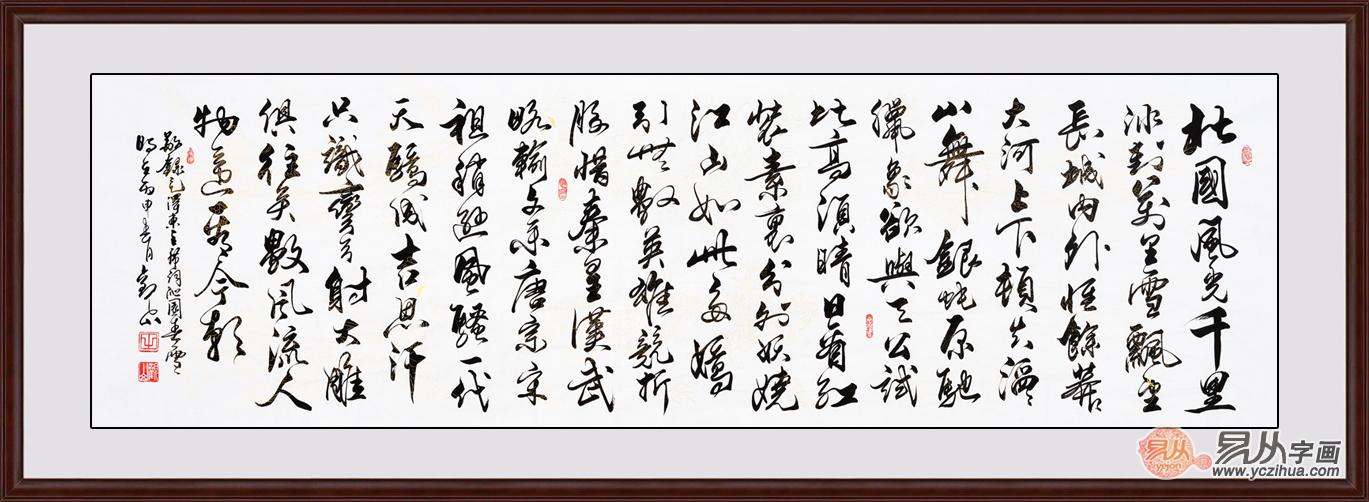 北國風光千里
冰封萬里雪飄望
長城內外惟餘莽々
大河上下頓失滔々
山舞銀蛇原馳
臘象欲與天公試
比高須晴日看紅
裝素裹分外妖嬈
江山如此多嬌
引無數英雄競折
腰惜秦皇漢武
略輸文采唐宗宋
祖稍遜風騷一代
天驕成吉思汗
只識彎弓射大雕
俱往矣數風流人
物還看今朝
敬錄毛澤東主席詞沁園春雪
時在丙申春月
易从字画
www.yczihua.com